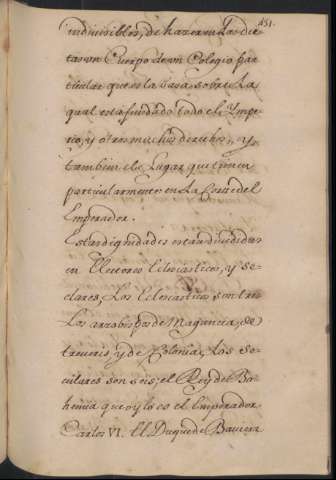 151.
indiuisibles, de hazer en las Die
tas un Cuerpo de un Colegio par
ticular que es la basa sobre la
qual esta fundado todo el Ympe
rio, y otros muchos derechos, y
tambien el Lugar que tienen
particularmente en la Corte del
Emperador.
Estas dignidades estan diuididas
en Electores Eclesiasticos, y se
clares, Los Eclesiasticos son tres
Los arzobispos de Maguncia, de
treueris, y de Colonia, Los se
culares son seis, el Rey de Bo
hemia que oy lo es el Emperador
Carlos VI. El Duque de Baviera